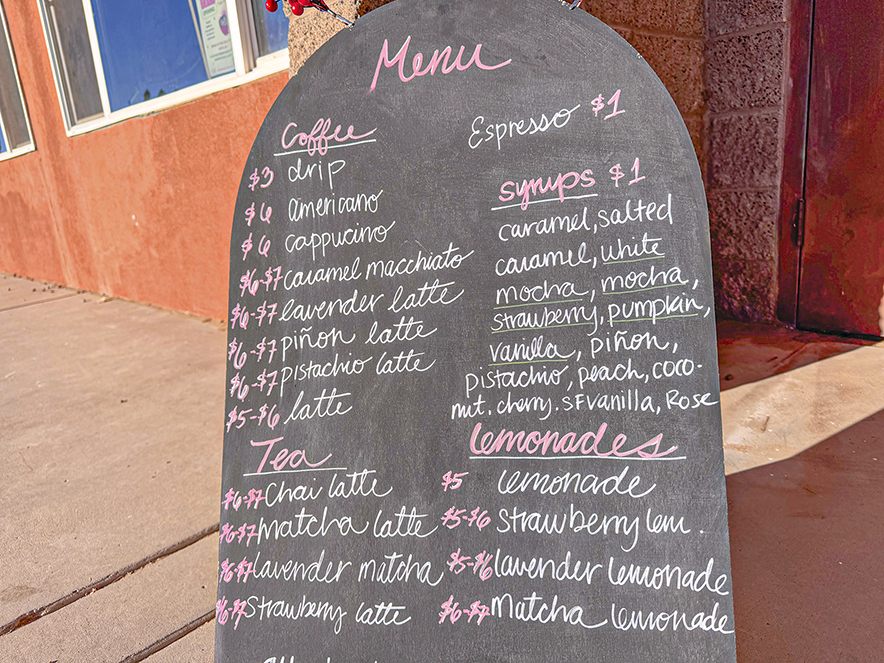 Menu
Coffee
$3 drip
$6 americano
$6 cappucino
$6-$7 caramel macchiato
$6-$7 lavender latte
$6-$7 piñon latte
$6-$7 pistachio latte
$5-$6 latte
Tea
$6-$7 Chai latte
$6-$7 matcha latte
$6-$7 lavender matcha
$6-$7 Strawberry latte
Espresso $1
syrups $1
caramel, salted
caramel, white
mocha, mocha,
strawberry, pumpkin,
vanilla, piñon,
pistachio, peach, coco-
nut. cherry. SF vanilla, Rose
lemonades
$5 lemonade
$5-$6 Strawberry lem.
$5-$6 lavender lemonade
$6-$7 Matcha lemonade